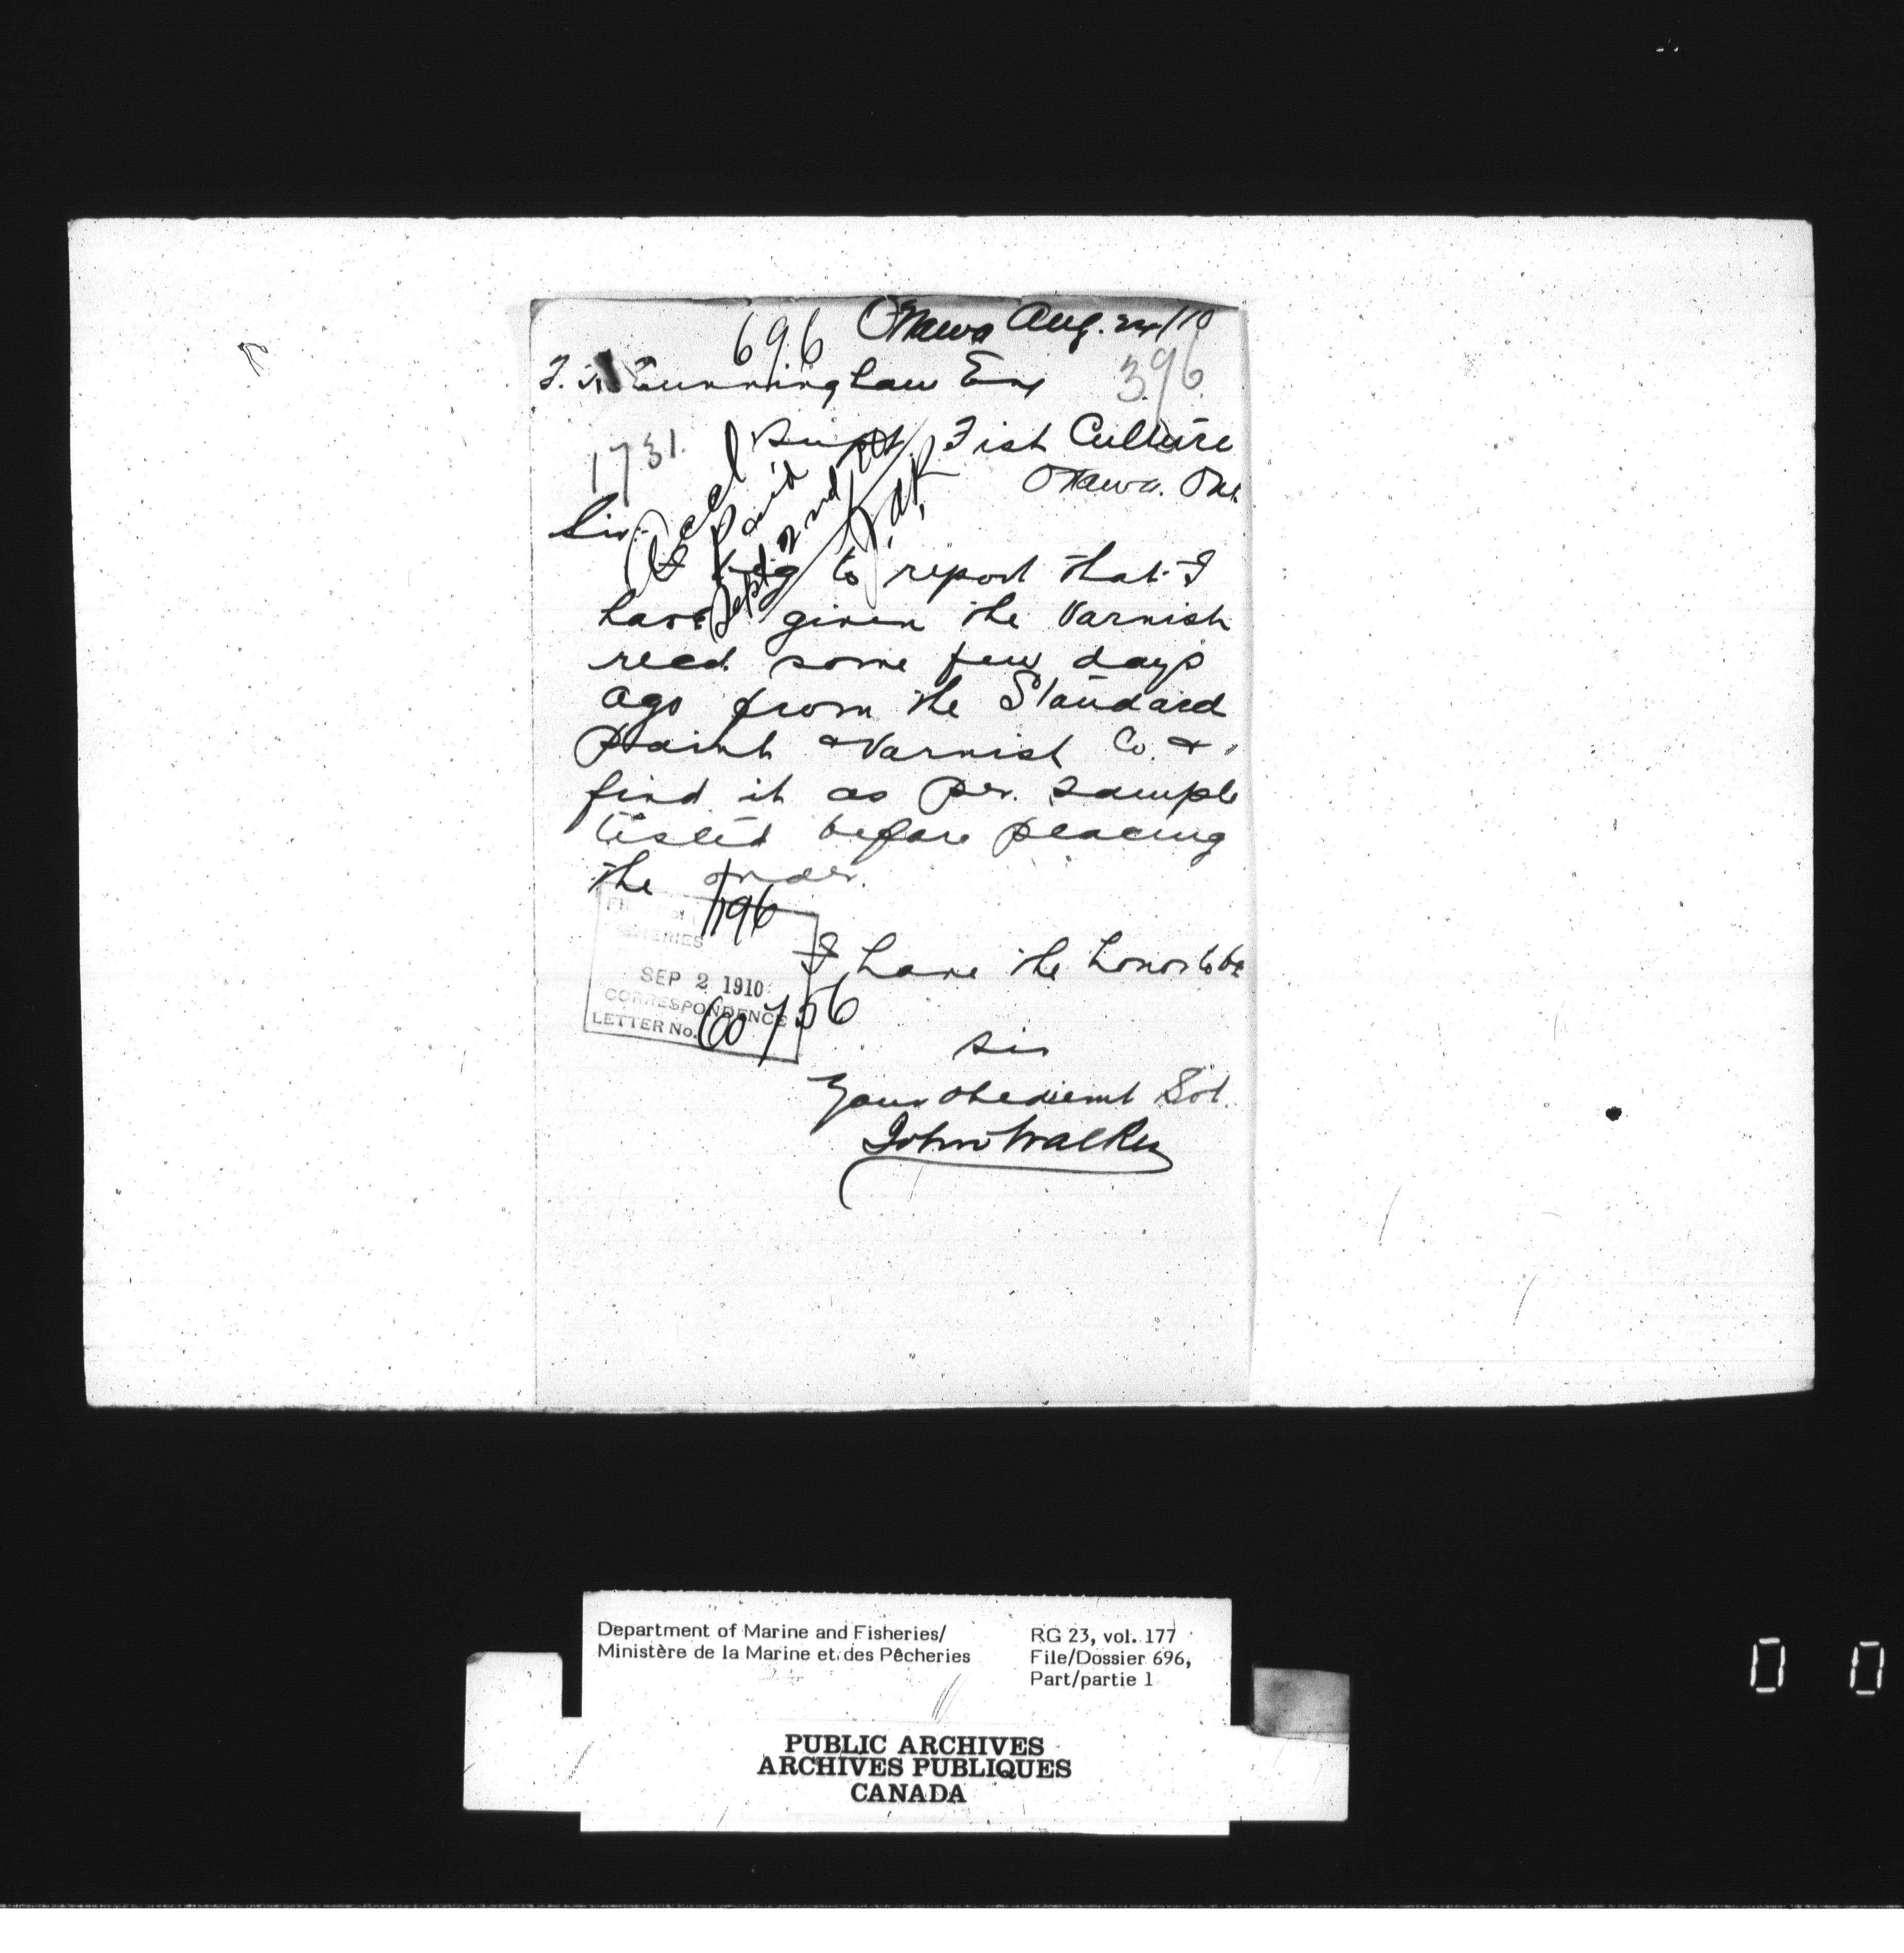 696 Ottawa Aug. 24/10
396
F. H. Cunningham Esq
1731. Supt. Fish Culture
Ottawa. Ont.
Sir:
Accd
& paid
Sept. 2nd
I beg to report that I
have given the Varnish
recd. some few days
ago from the Standard
Paint & Varnish Co. &
find it as per. sample
tested before placing
the order.
I have the honor to be
sir
Your obedient Svt.
John Walker
1196
FISHERIES
SEP 2 1910
CORRESPONDENCE
LETTER No. 60756
Department of Marine and Fisheries/
Ministère de la Marine et des Pêcheries
RG 23, vol. 177
File/Dossier 696,
Part/partie 1
PUBLIC ARCHIVES
ARCHIVES PUBLIQUES
CANADA
0 0